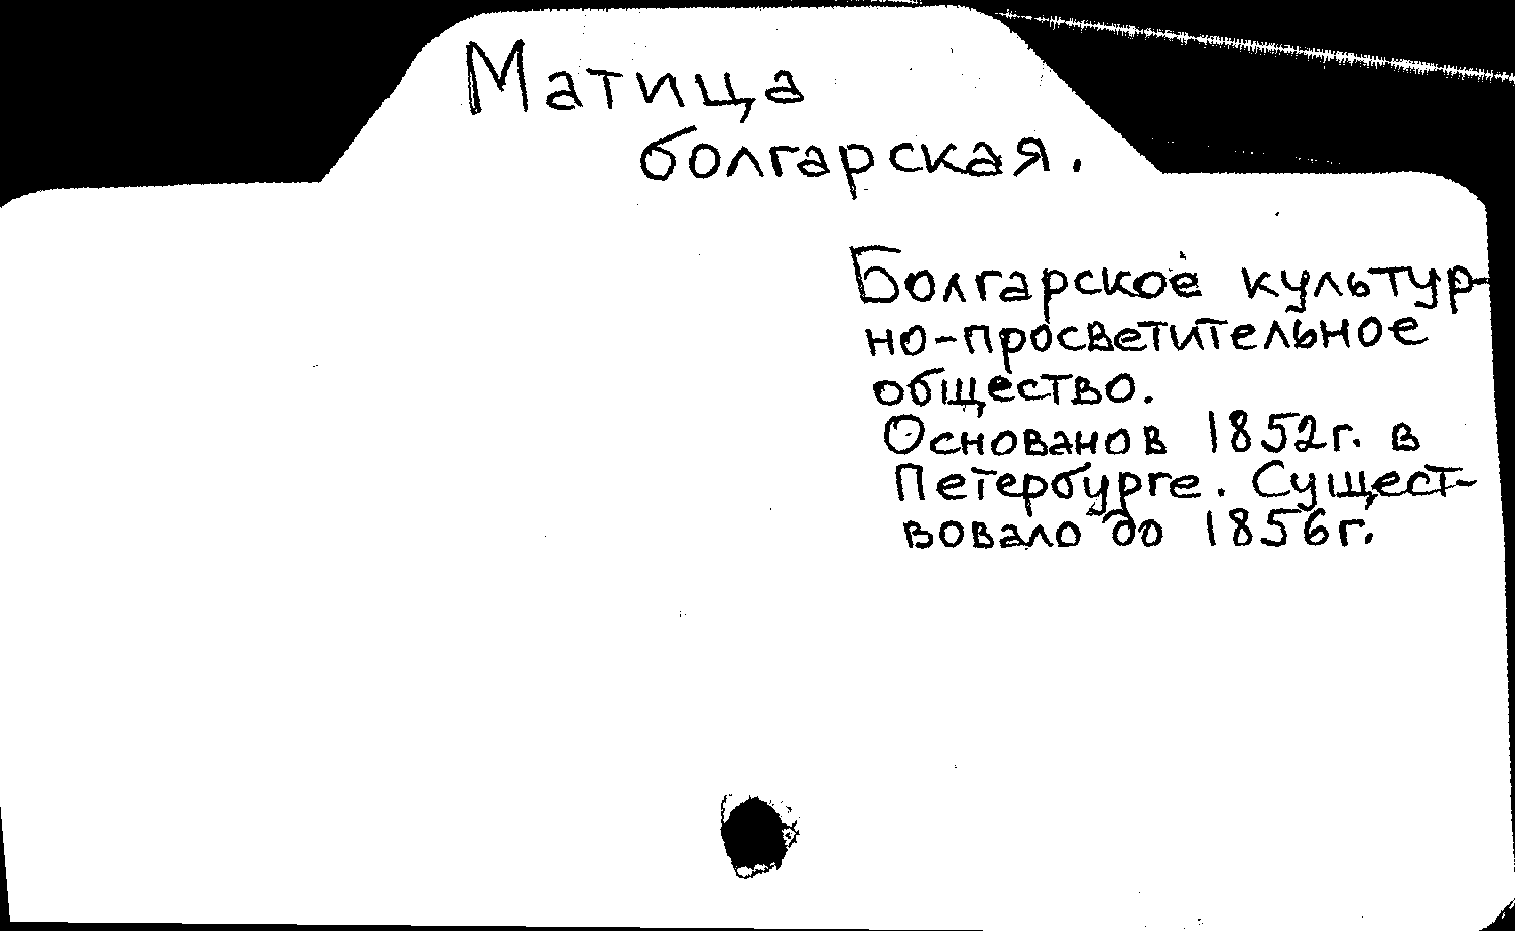 Матица
болгарская.
Болгарское культур-
но-просветительное
общество.
Основано в 1852г. в
Петербурге. Сущест-
вовало до 1856г.